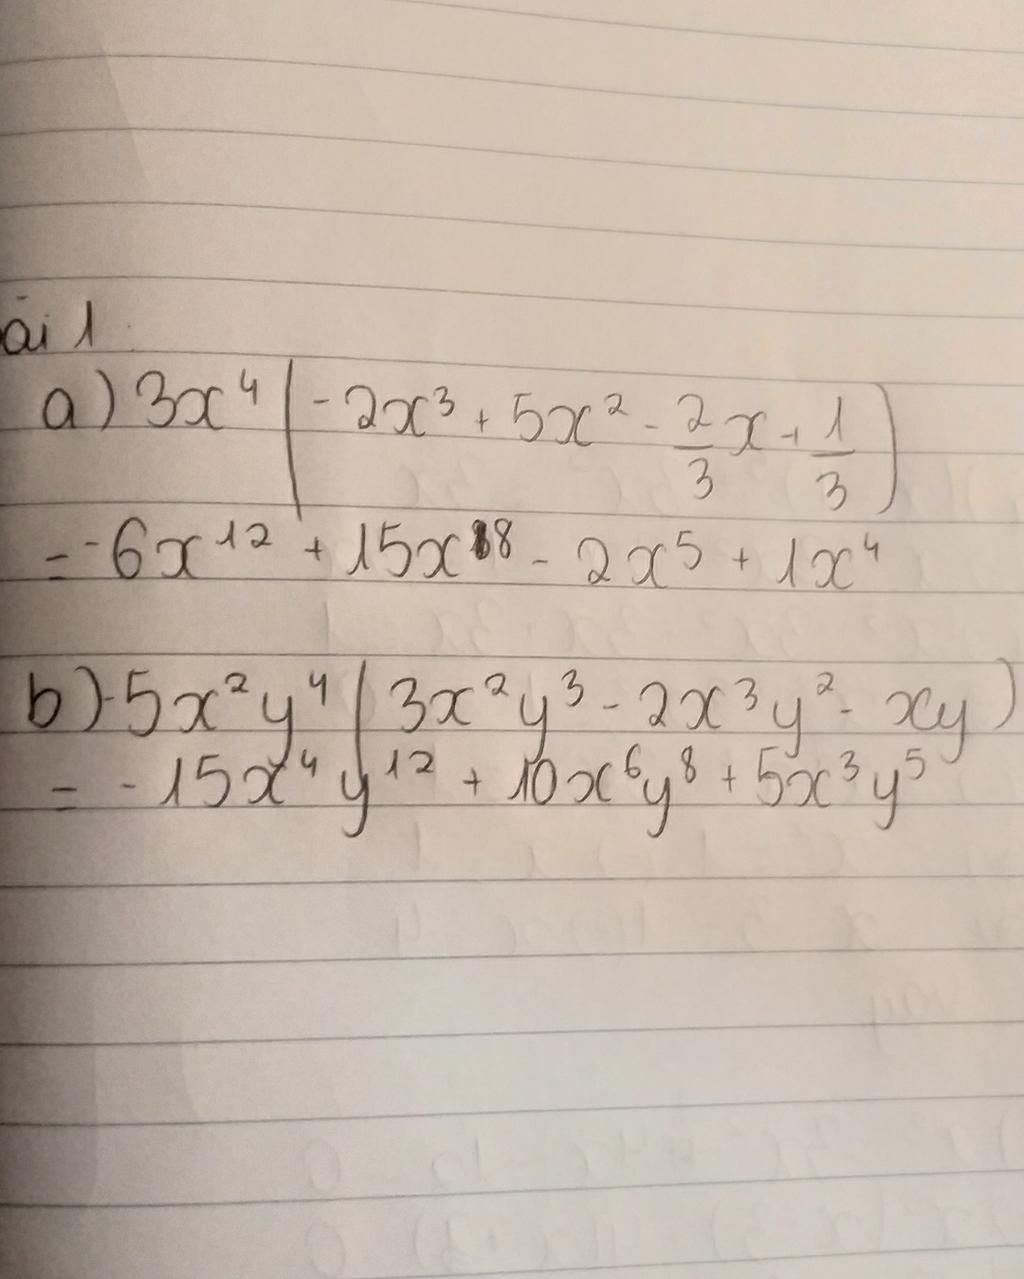 ài 1
a) 3x⁴ (-2x³ + 5x² - 2/3 x + 1/3)
= -6x¹² + 15x⁸ - 2x⁵ + 1x⁴
b) -5x²y⁴ (3x²y³ - 2x³y² - xy)
= -15x⁴y¹² + 10x⁶y⁸ + 5x³y⁵